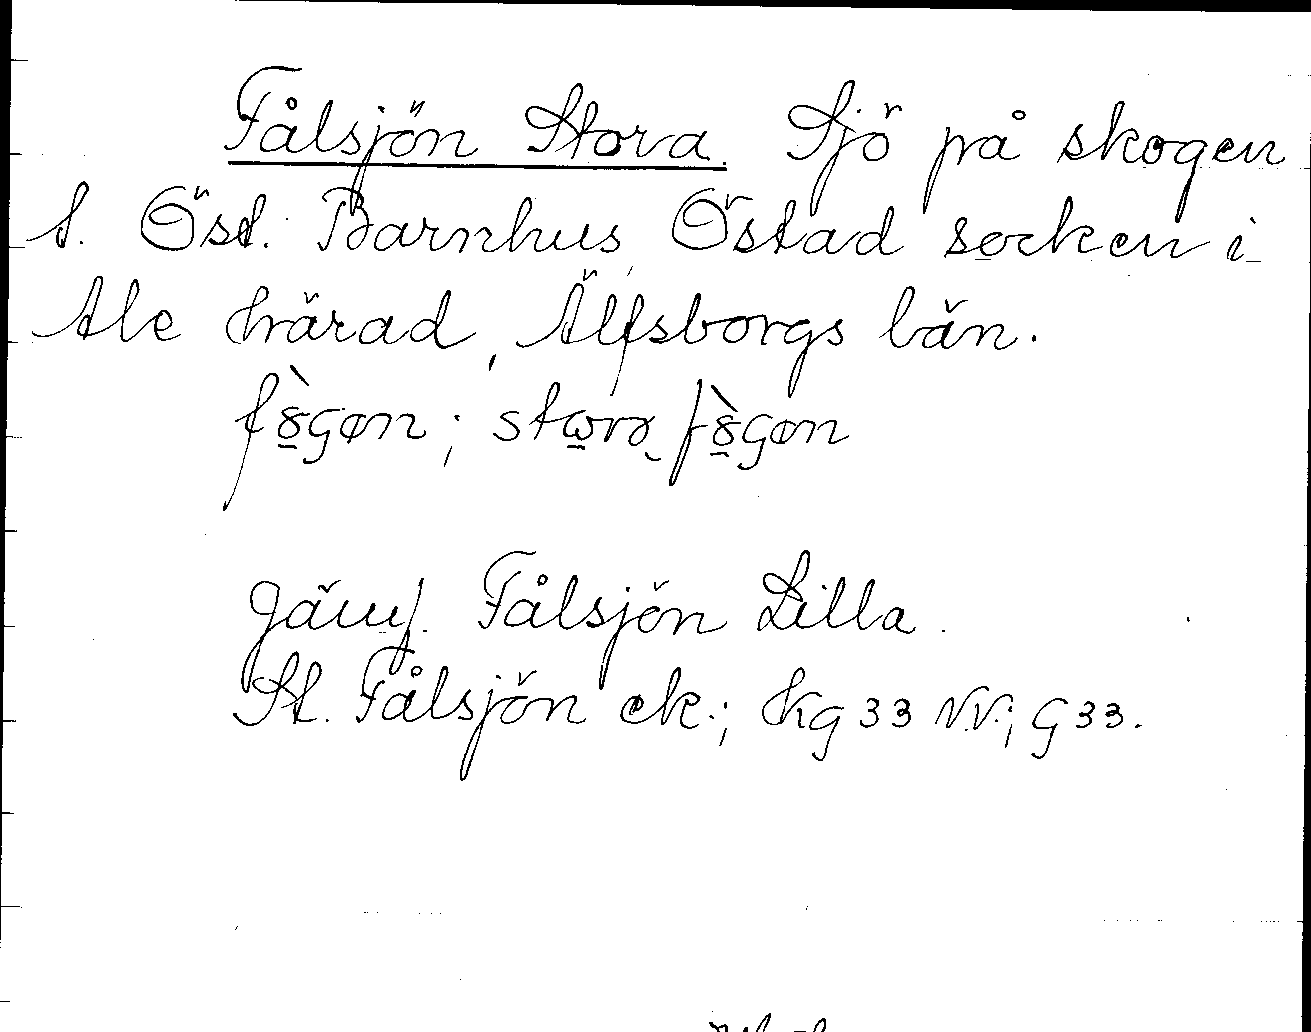 Fålsjön Stora. Sjö på skogen
t. Öst. Barnhus, Östad socken i
Ale härad, Älfsborgs län.
Jämf. Fålsjön Lilla.
St. Fålsjön ek.; HKg 33 N.V.; G 33.